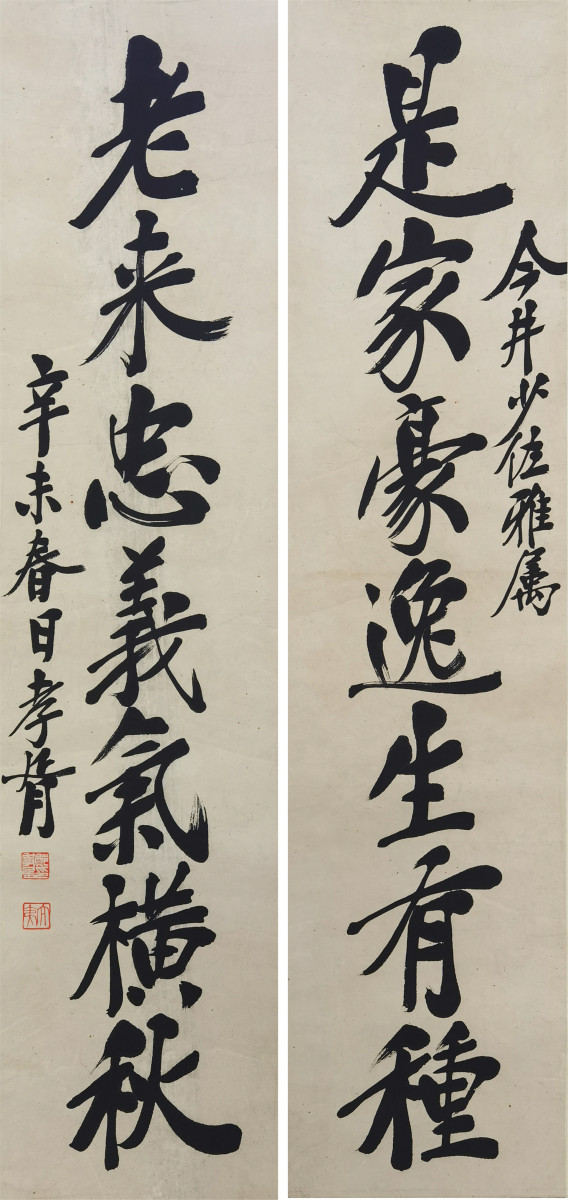 今井少佐雅屬
是家豪逸生有種
老来忠義氣橫秋
辛未春日孝胥